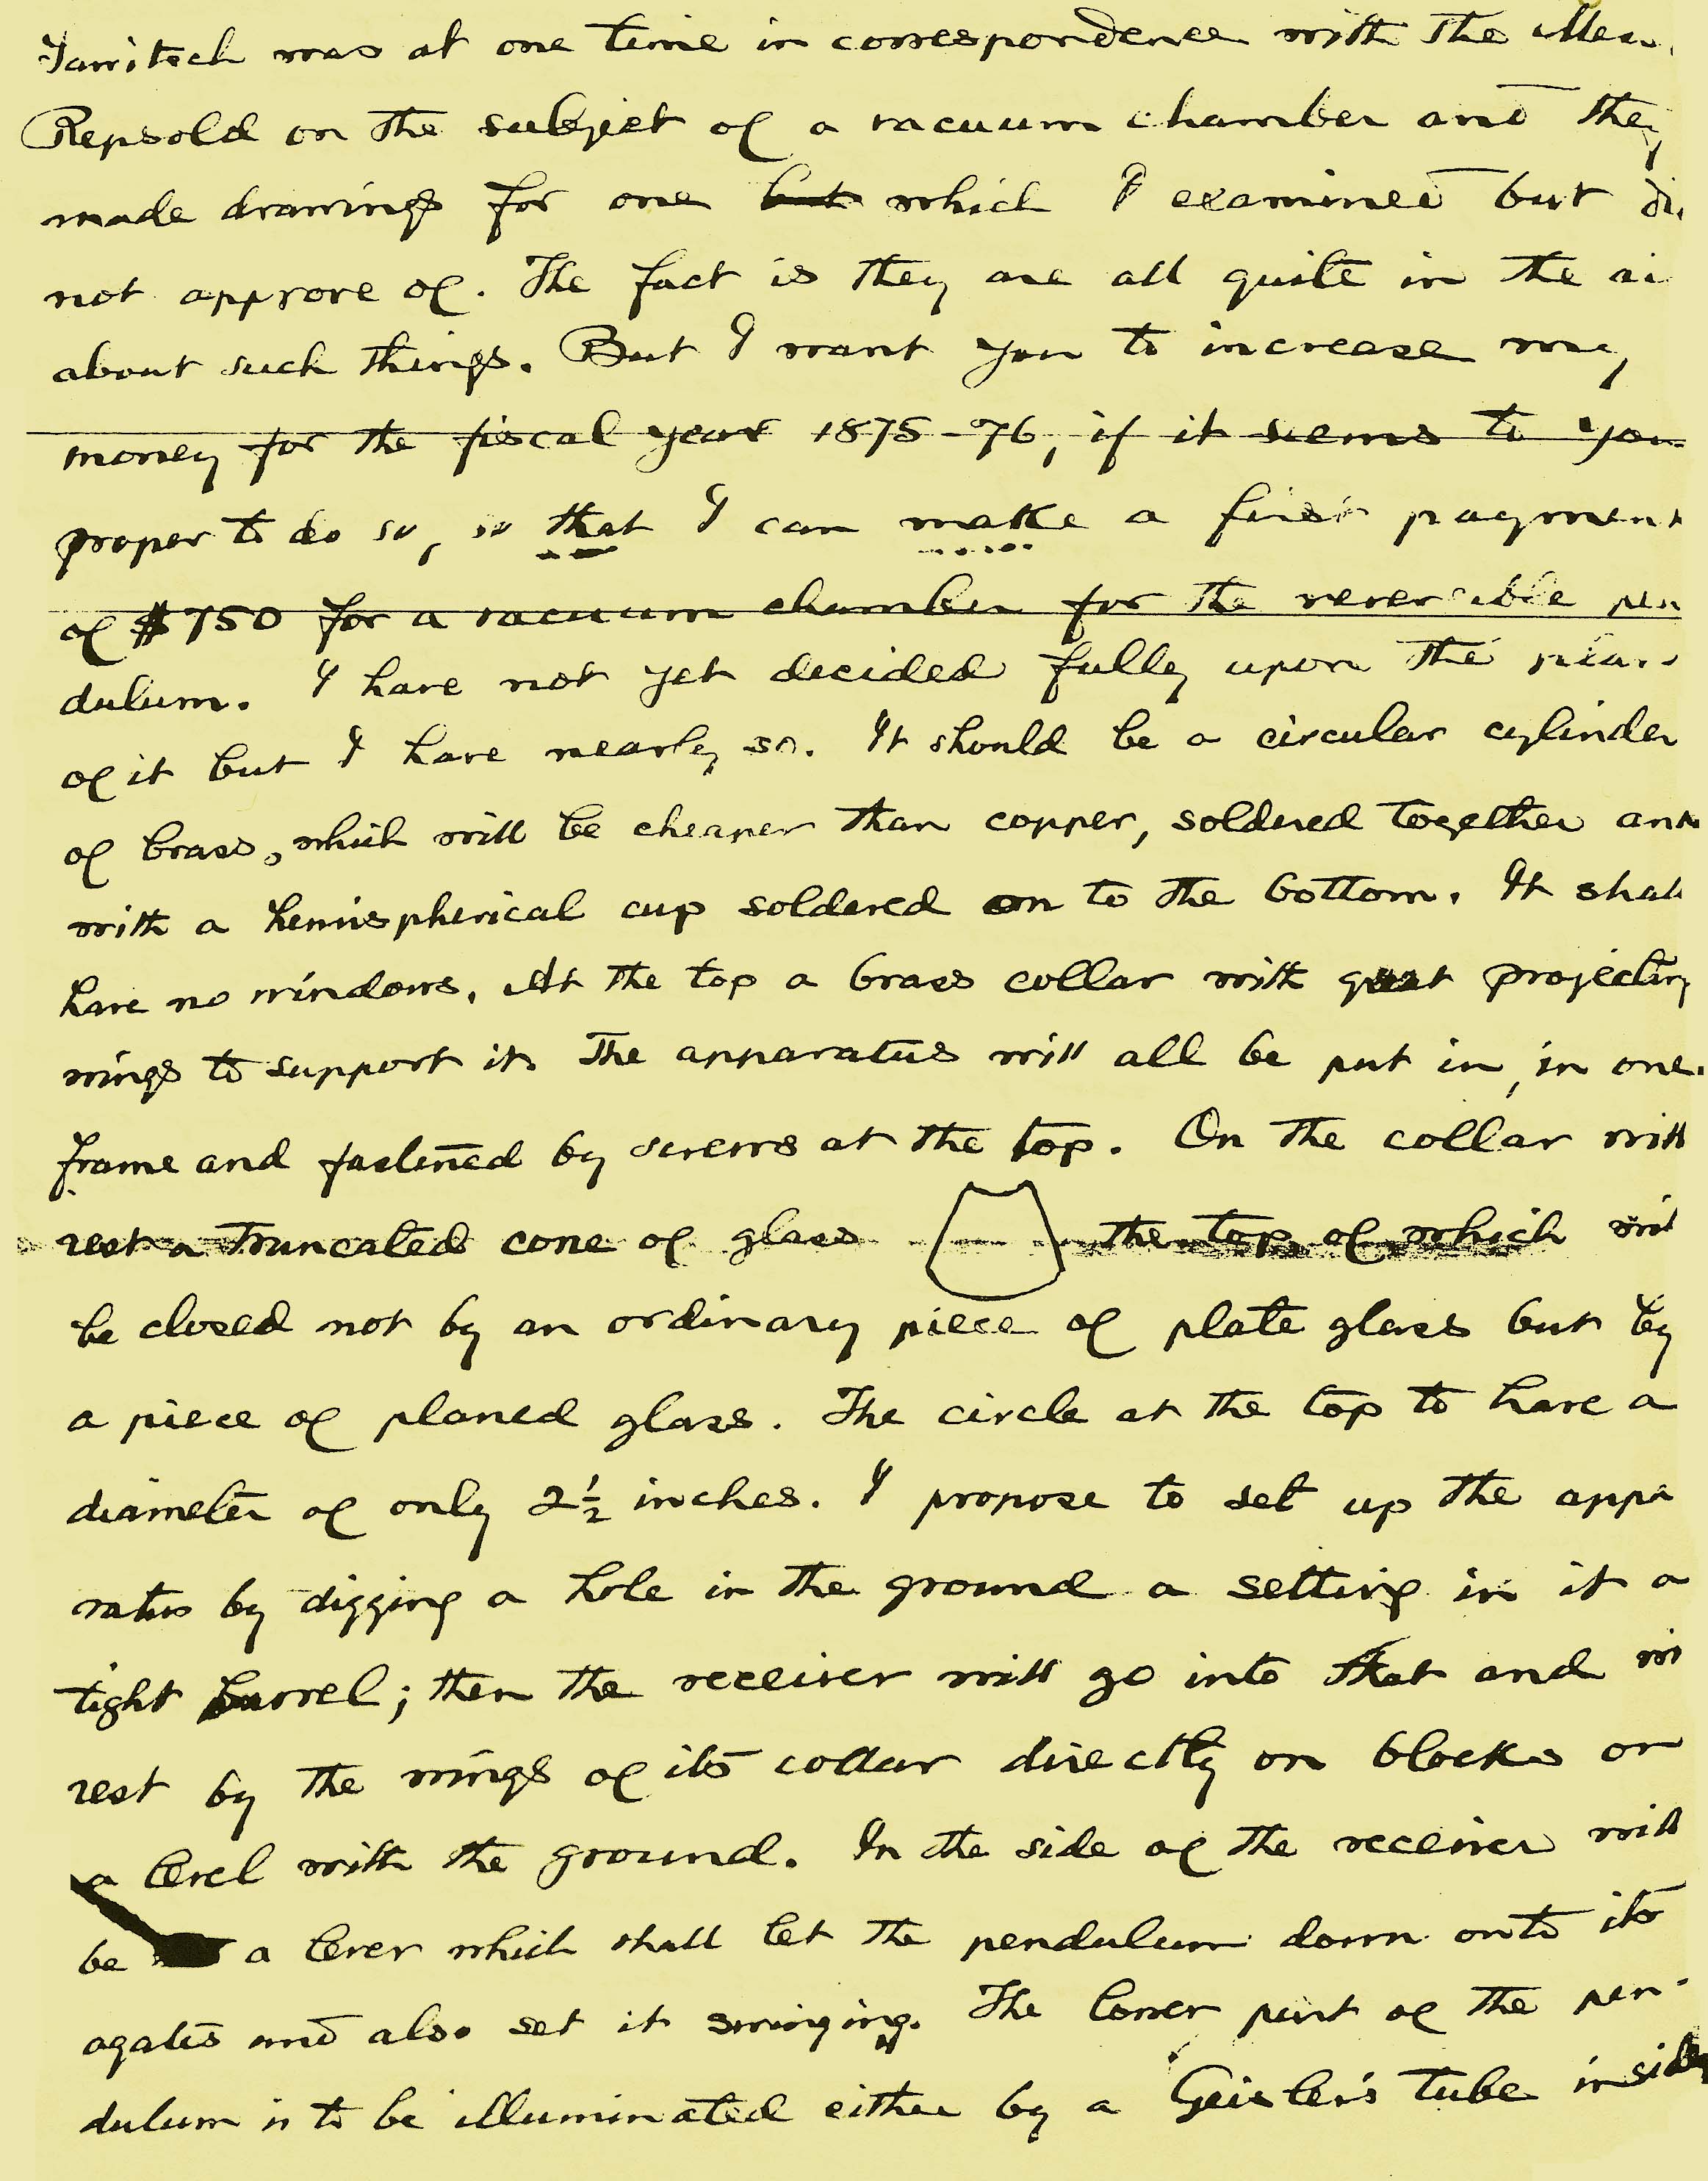 was at one time in correspondence with the
Repsold on the subject of a vacuum chamber and they
made drawings for one but which I examined but
not approve of. The fact is they are all quite in the
about such things. But I want you to increase my
money for the fiscal year 1875-76, if it seems to you
proper to do so, so that I can make a first payment
of $750 for a vacuum chamber for the reversible pen
dulum. I have not yet decided fully upon the
of it but I have nearly so. It should be a circular cylinder
of brass, which will be cheaper than copper, soldered together and
with a hemispherical cup soldered on to the bottom. It shall
have no windows. At the top a brass collar with great projecting
wings to support it. The apparatus will all be put in, in one
frame and fastened by screws at the top. On the collar will
rest a truncated cone of glass the top of which will
be closed not by an ordinary piece of plate glass but by
a piece of planed glass. The circle at the top to have a
diameter of only 2½ inches. I propose to set up the appa
ratus by digging a hole in the ground a setting in it a
tight barrel; then the receiver will go into that and
rest by the wings of its collar directly on blocks on
a level with the ground. In the side of the receiver will
be a lever which shall let the pendulum down onto its
agates and also set it swinging. The lower part of the pen-
dulum is to be illuminated either by a Geisler's tube inside